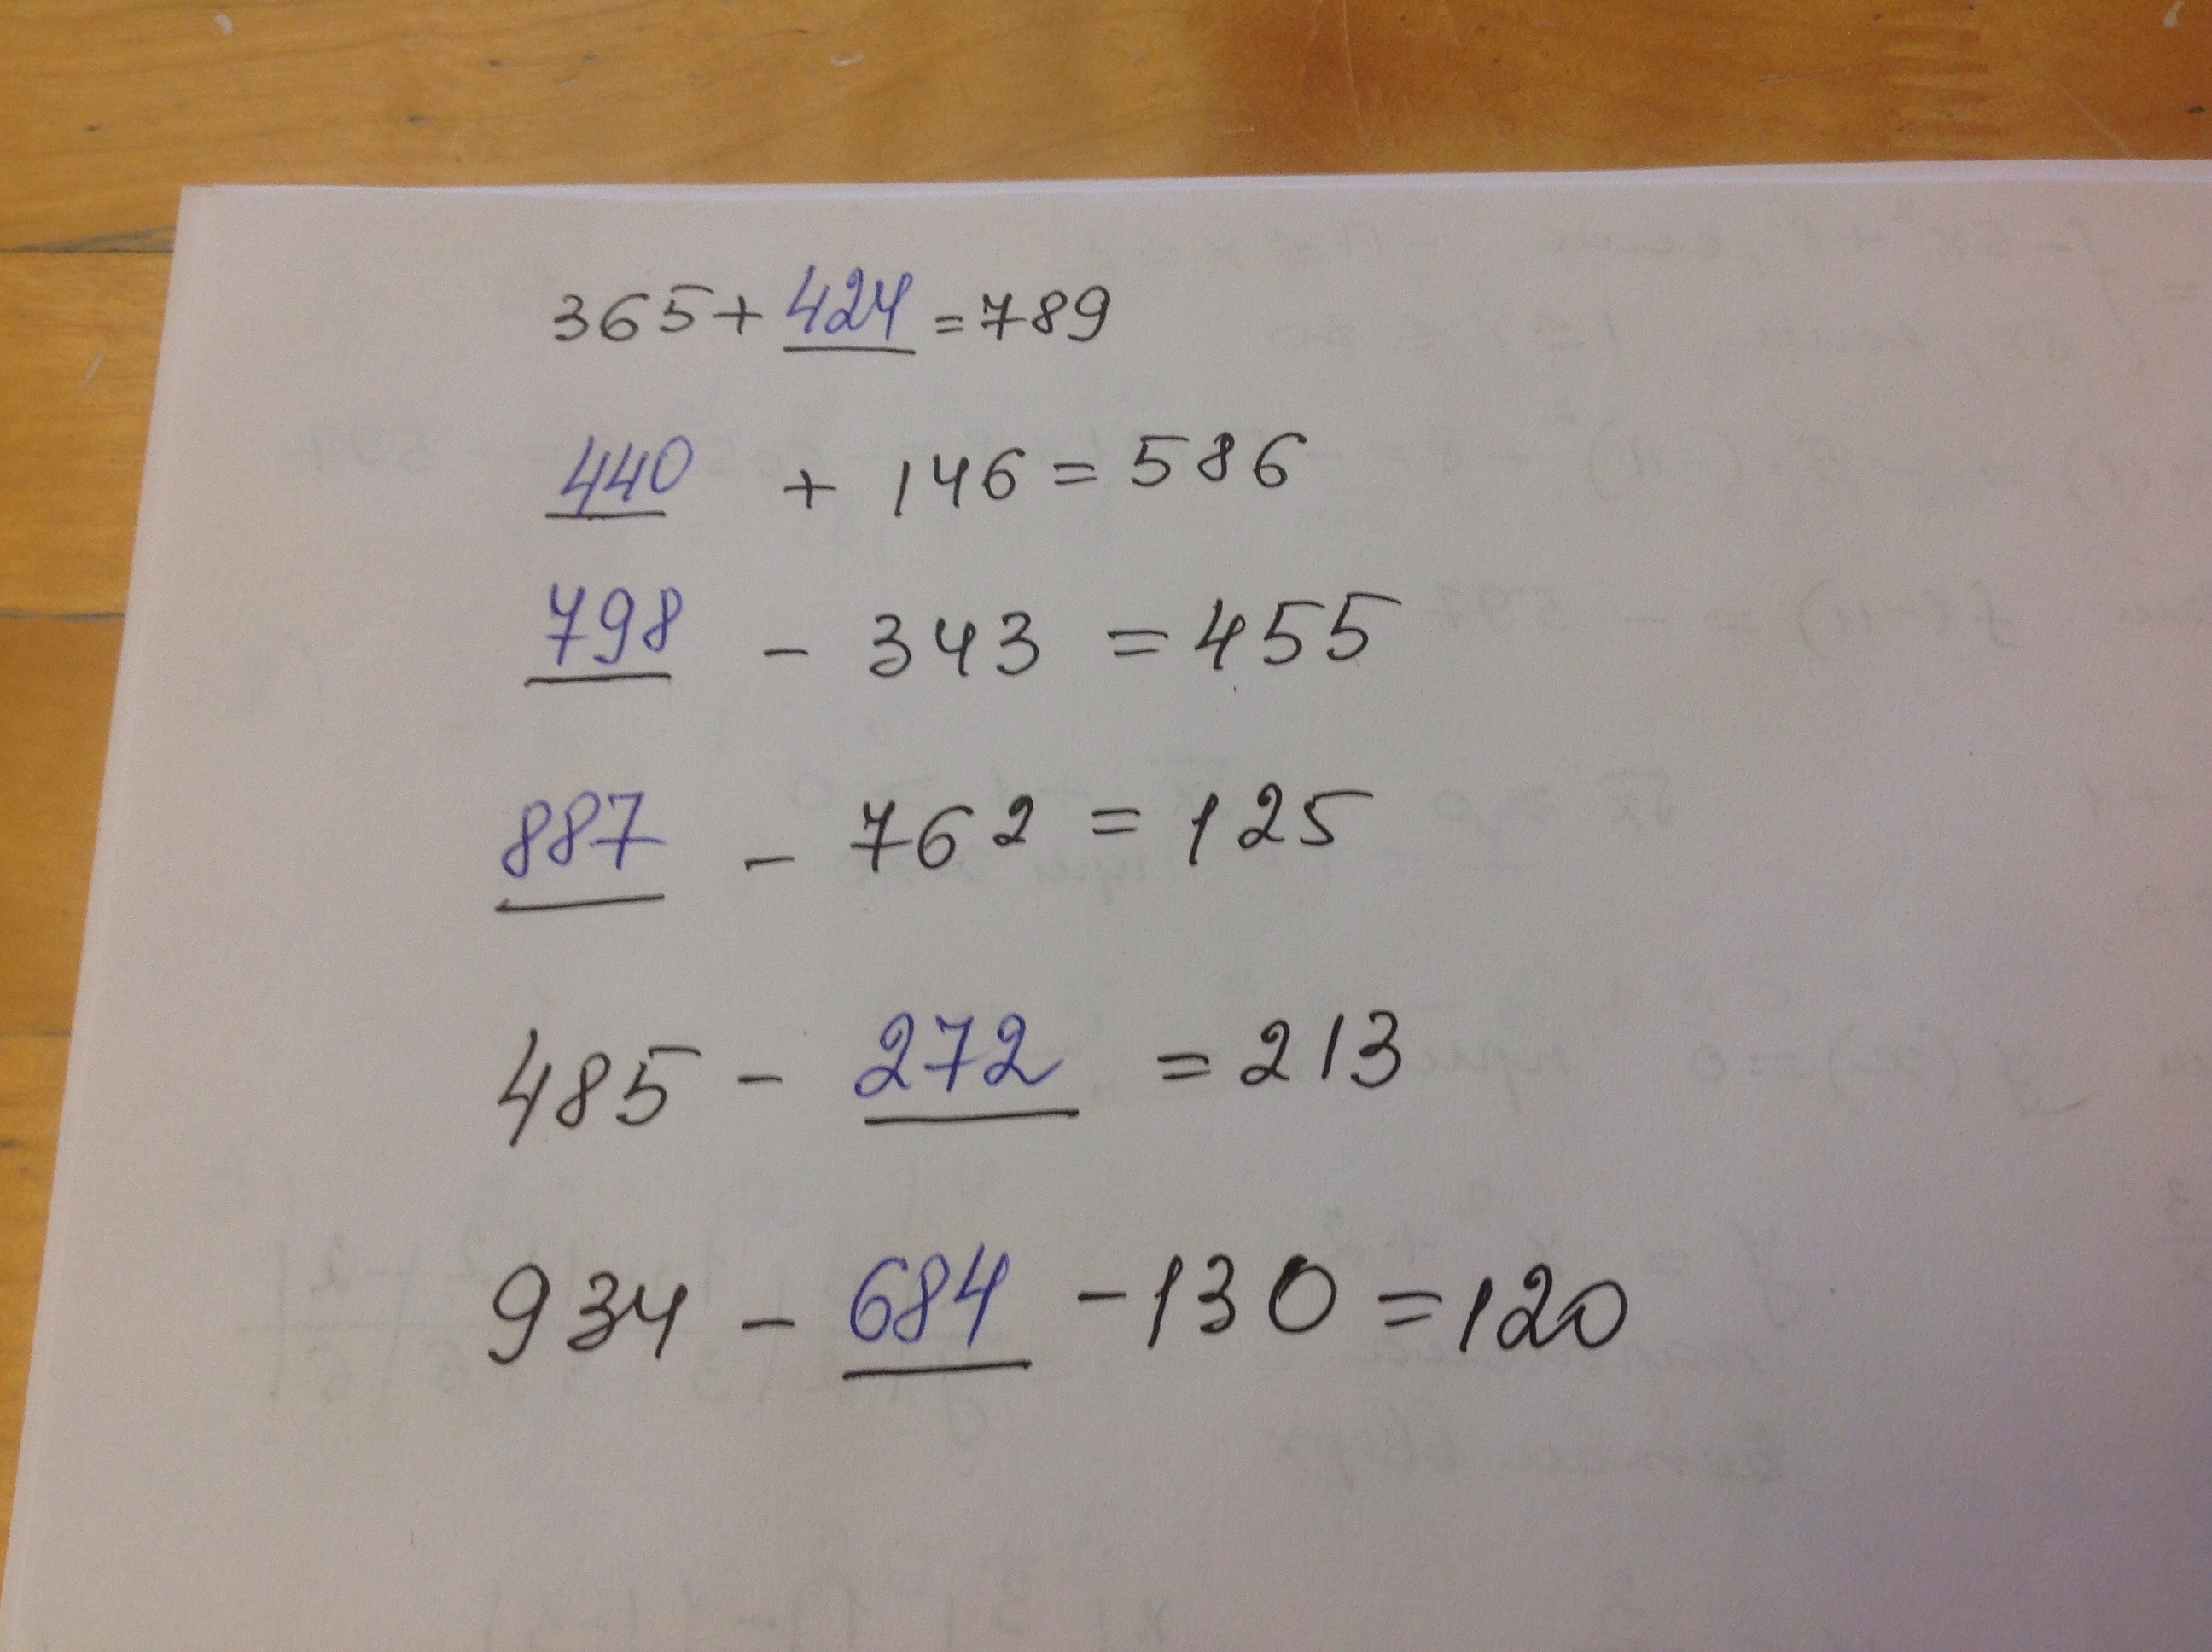 365+424=789
440 + 146=586
798 - 343 =455
887 - 762 = 125
485 - 272 =213
934 - 684 -130=120